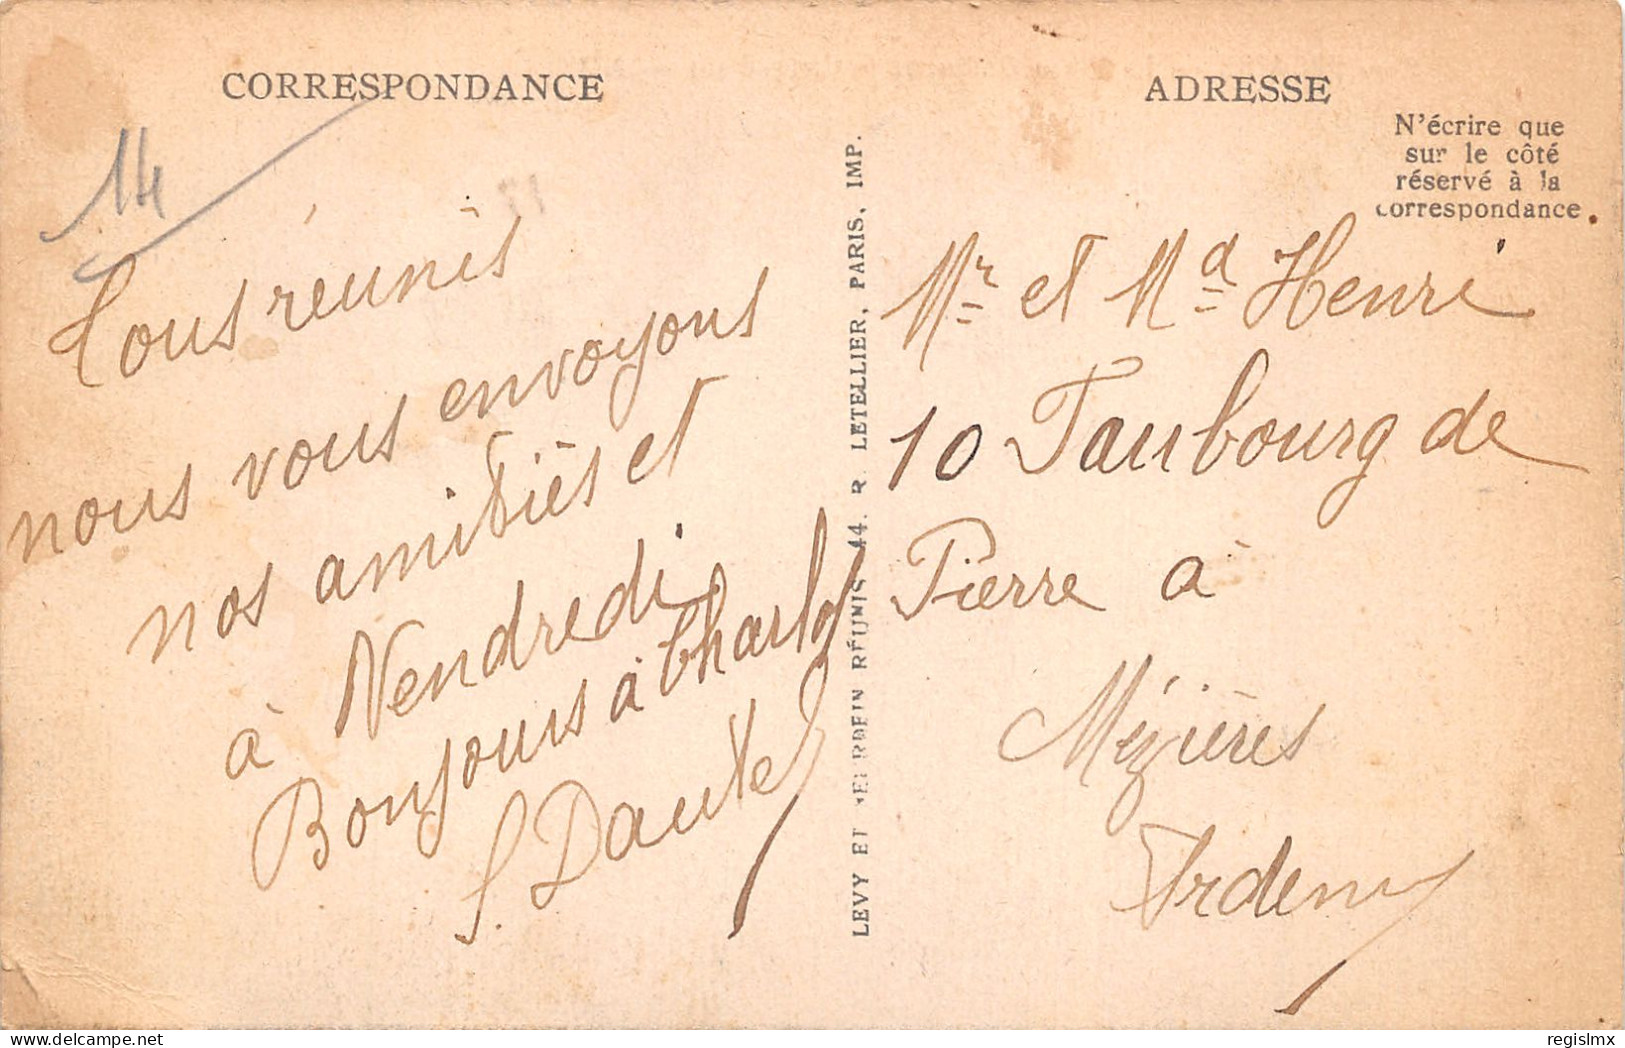 CORRESPONDANCE
14
Tous réunis
nous vous envoyons
nos amitiés et
à Vendredi
Bonjours à Charly
S. Dautel
LEVY ET NEURDEIN RÉUNIS 44. R. LETELLIER, PARIS, IMP.
ADRESSE
N'écrire que
sur le côté
réservé à la
correspondance.
Mr et Md Henri
10 Faubourg de
Pierre à
Mézières
Ardennes
delcampe.net
regislmx